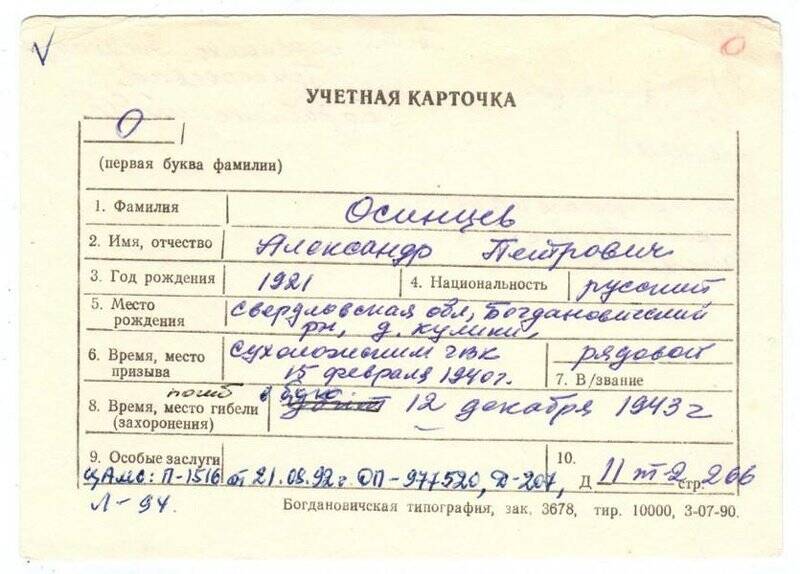 V
О
УЧЕТНАЯ КАРТОЧКА
О
(первая буква фамилии)
1. Фамилия Осинцев
2. Имя, отчество Александр Петрович
3. Год рождения 1921 4. Национальность русский
5. Место рождения Свердловская обл, Богдановичский
рн, д. Кулики,
6. Время, место призыва Сухоложским ГВК рядовой
15 февраля 1940г. 7. В/звание
погиб в бою
8. Время, место гибели (захоронения) 12 декабря 1943 г
9. Особые заслуги 10.
ЦАМС: П-1516 от 21.08.92 г. ОП-977520, Д-207, Д 11 т-2 стр. 266
Л-94.
Богдановичская типография, зак. 3678, тир. 10000, 3-07-90.